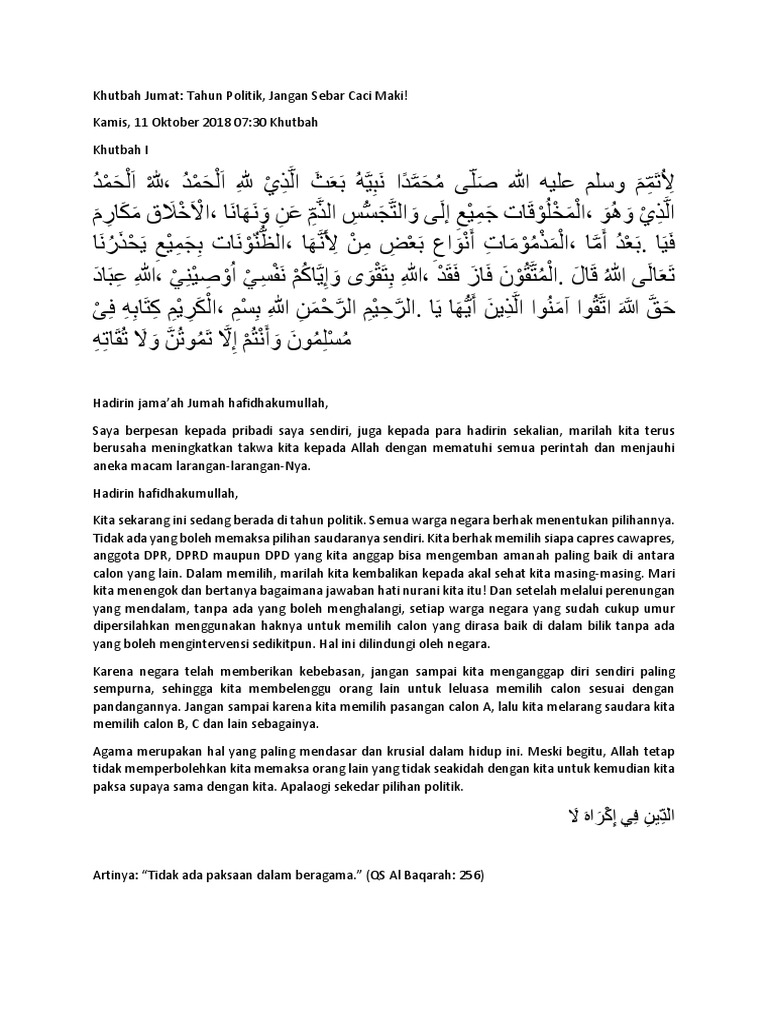 Khutbah Jumat: Tahun Politik, Jangan Sebar Caci Maki!
Kamis, 11 Oktober 2018 07:30 Khutbah
Khutbah I
اَلْحَمْدُ للهْ، اَلْحَمْدُ للهِ الَّذِيْ بَعَثَ نَبِيَّهُ مُحَمَّدًا صَلَّى الله عليه وسلم لِأُتَمِّمَ
مَكَارِمَ الْأَخْلَاق، وَنَهَانَا عَنِ الذَّمِّ وَالتَّجَسُّسِ إِلَى جَمِيْعِ الْمَخْلُوْقَات، وَهُوَ الَّذِيْ
يَحْذَرُنَا بِجَمِيْعِ الظُّنُوْنَات، لِأَنَّهَا مِنْ بَعْضِ أَنْوَاعِ الْمَذْمُوْمَاتِ، أَمَّا بَعْدُ. فَيَا
عِبَادَ اللهِ، اُوْصِيْنِيْ نَفْسِيْ وَإِيَّاكُمْ بِتَقْوَى اللهِ، فَقَدْ فَازَ الْمُتَّقُوْنَ. قَالَ اللهُ تَعَالَى
فِىْ كِتَابِهِ الْكَرِيْمِ، بِسْمِ اللهِ الرَّحْمَنِ الرَّحِيْمِ. يَا أَيُّهَا الَّذِينَ آمَنُوا اتَّقُوا اللَّهَ حَقَّ
تُقَاتِهِ وَلَا تَمُوتُنَّ إِلَّا وَأَنْتُمْ مُسْلِمُونَ
Hadirin jama’ah Jumah hafidhakumullah,
Saya berpesan kepada pribadi saya sendiri, juga kepada para hadirin sekalian, marilah kita terus
berusaha meningkatkan takwa kita kepada Allah dengan mematuhi semua perintah dan menjauhi
aneka macam larangan-larangan-Nya.
Hadirin hafidhakumullah,
Kita sekarang ini sedang berada di tahun politik. Semua warga negara berhak menentukan pilihannya.
Tidak ada yang boleh memaksa pilihan saudaranya sendiri. Kita berhak memilih siapa capres cawapres,
anggota DPR, DPRD maupun DPD yang kita anggap bisa mengemban amanah paling baik di antara
calon yang lain. Dalam memilih, marilah kita kembalikan kepada akal sehat kita masing-masing. Mari
kita menengok dan bertanya bagaimana jawaban hati nurani kita itu! Dan setelah melalui perenungan
yang mendalam, tanpa ada yang boleh menghalangi, setiap warga negara yang sudah cukup umur
dipersilahkan menggunakan haknya untuk memilih calon yang dirasa baik di dalam bilik tanpa ada
yang boleh mengintervensi sedikitpun. Hal ini dilindungi oleh negara.
Karena negara telah memberikan kebebasan, jangan sampai kita menganggap diri sendiri paling
sempurna, sehingga kita membelenggu orang lain untuk leluasa memilih calon sesuai dengan
pandangannya. Jangan sampai karena kita memilih pasangan calon A, lalu kita melarang saudara kita
memilih calon B, C dan lain sebagainya.
Agama merupakan hal yang paling mendasar dan krusial dalam hidup ini. Meski begitu, Allah tetap
tidak memperbolehkan kita memaksa orang lain yang tidak seakidah dengan kita untuk kemudian kita
paksa supaya sama dengan kita. Apalaogi sekedar pilihan politik.
لَا إِكْرَاهَ فِي الدِّينِ
Artinya: “Tidak ada paksaan dalam beragama.” (QS Al Baqarah: 256)